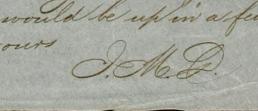 would be up in a fe
ours
J. M. D.